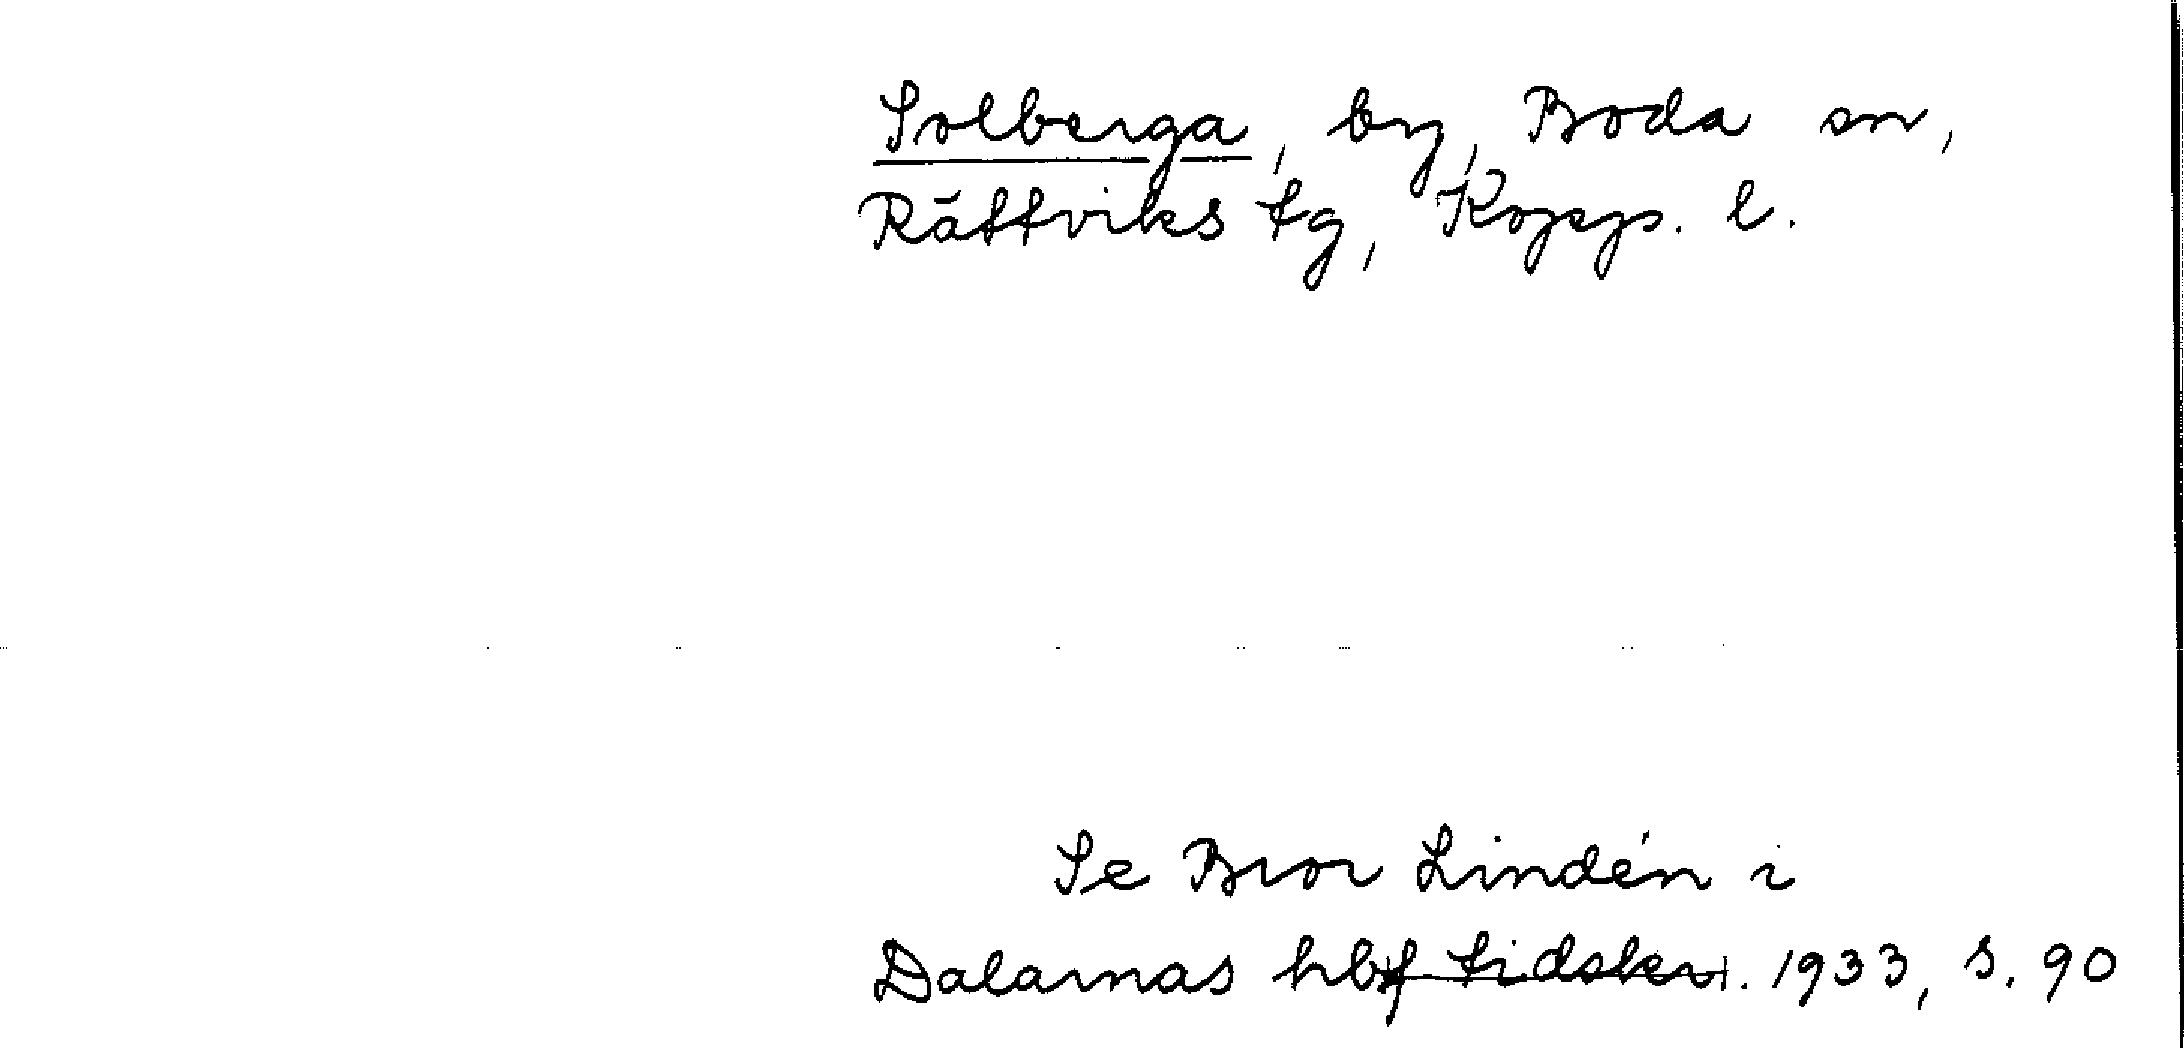 Solberga, by, Boda sn,
Rättviks tg, Kopp. l.
Se Bror Lindén i
Dalarnas hbf tidskr. 1933, s. 90